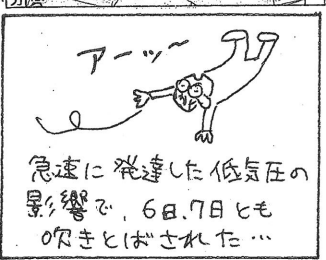 アーッ〜
急速に発達した低気圧の
影響で、6日、7日とも
吹きとばされた…